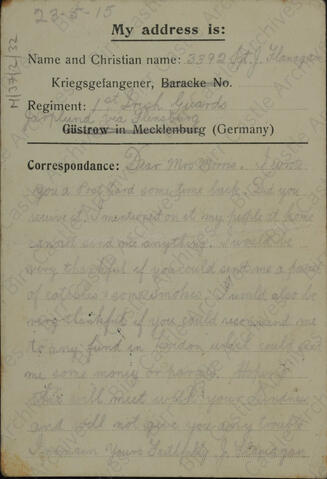 23-5-15
My address is:
Name and Christian name: 3392 Pt J. Flanagan
Kriegsgefangener, Baracke No.
Regiment: 1st Irish Guards
via Flensburg
Güstrow in Mecklenburg (Germany)
Correspondance: Dear Mrs I wrote
you a Post Card some time back. Did you
receive it. I mentioned on it my people at home
cannot send me anything. I would be
very thankful if you could sent me a parcel
of eatables & some smokes. I would also be
very thankful if you could recommend me
to any fund in London which could send
me some money or parcels. Hoping
this will meet with your kindness
and will not give you any trouble
I remain Yours Faithfully J. Flanagan
M/37/2/32
Birr Castle Archives